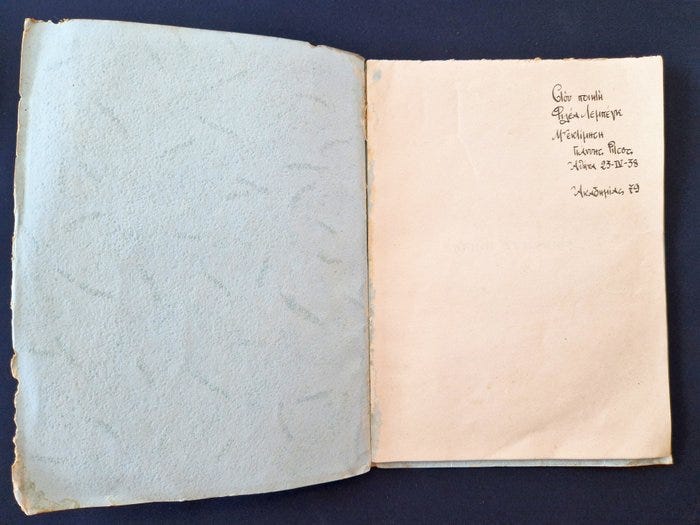 Στὸν ποιητὴ
Φιλέα Λεμπέγκ
Μ' ἐκτίμηση
Γιάννης Ρίτσος
Ἀθήνα 23-IV-38
Ἀκαδημίας 79